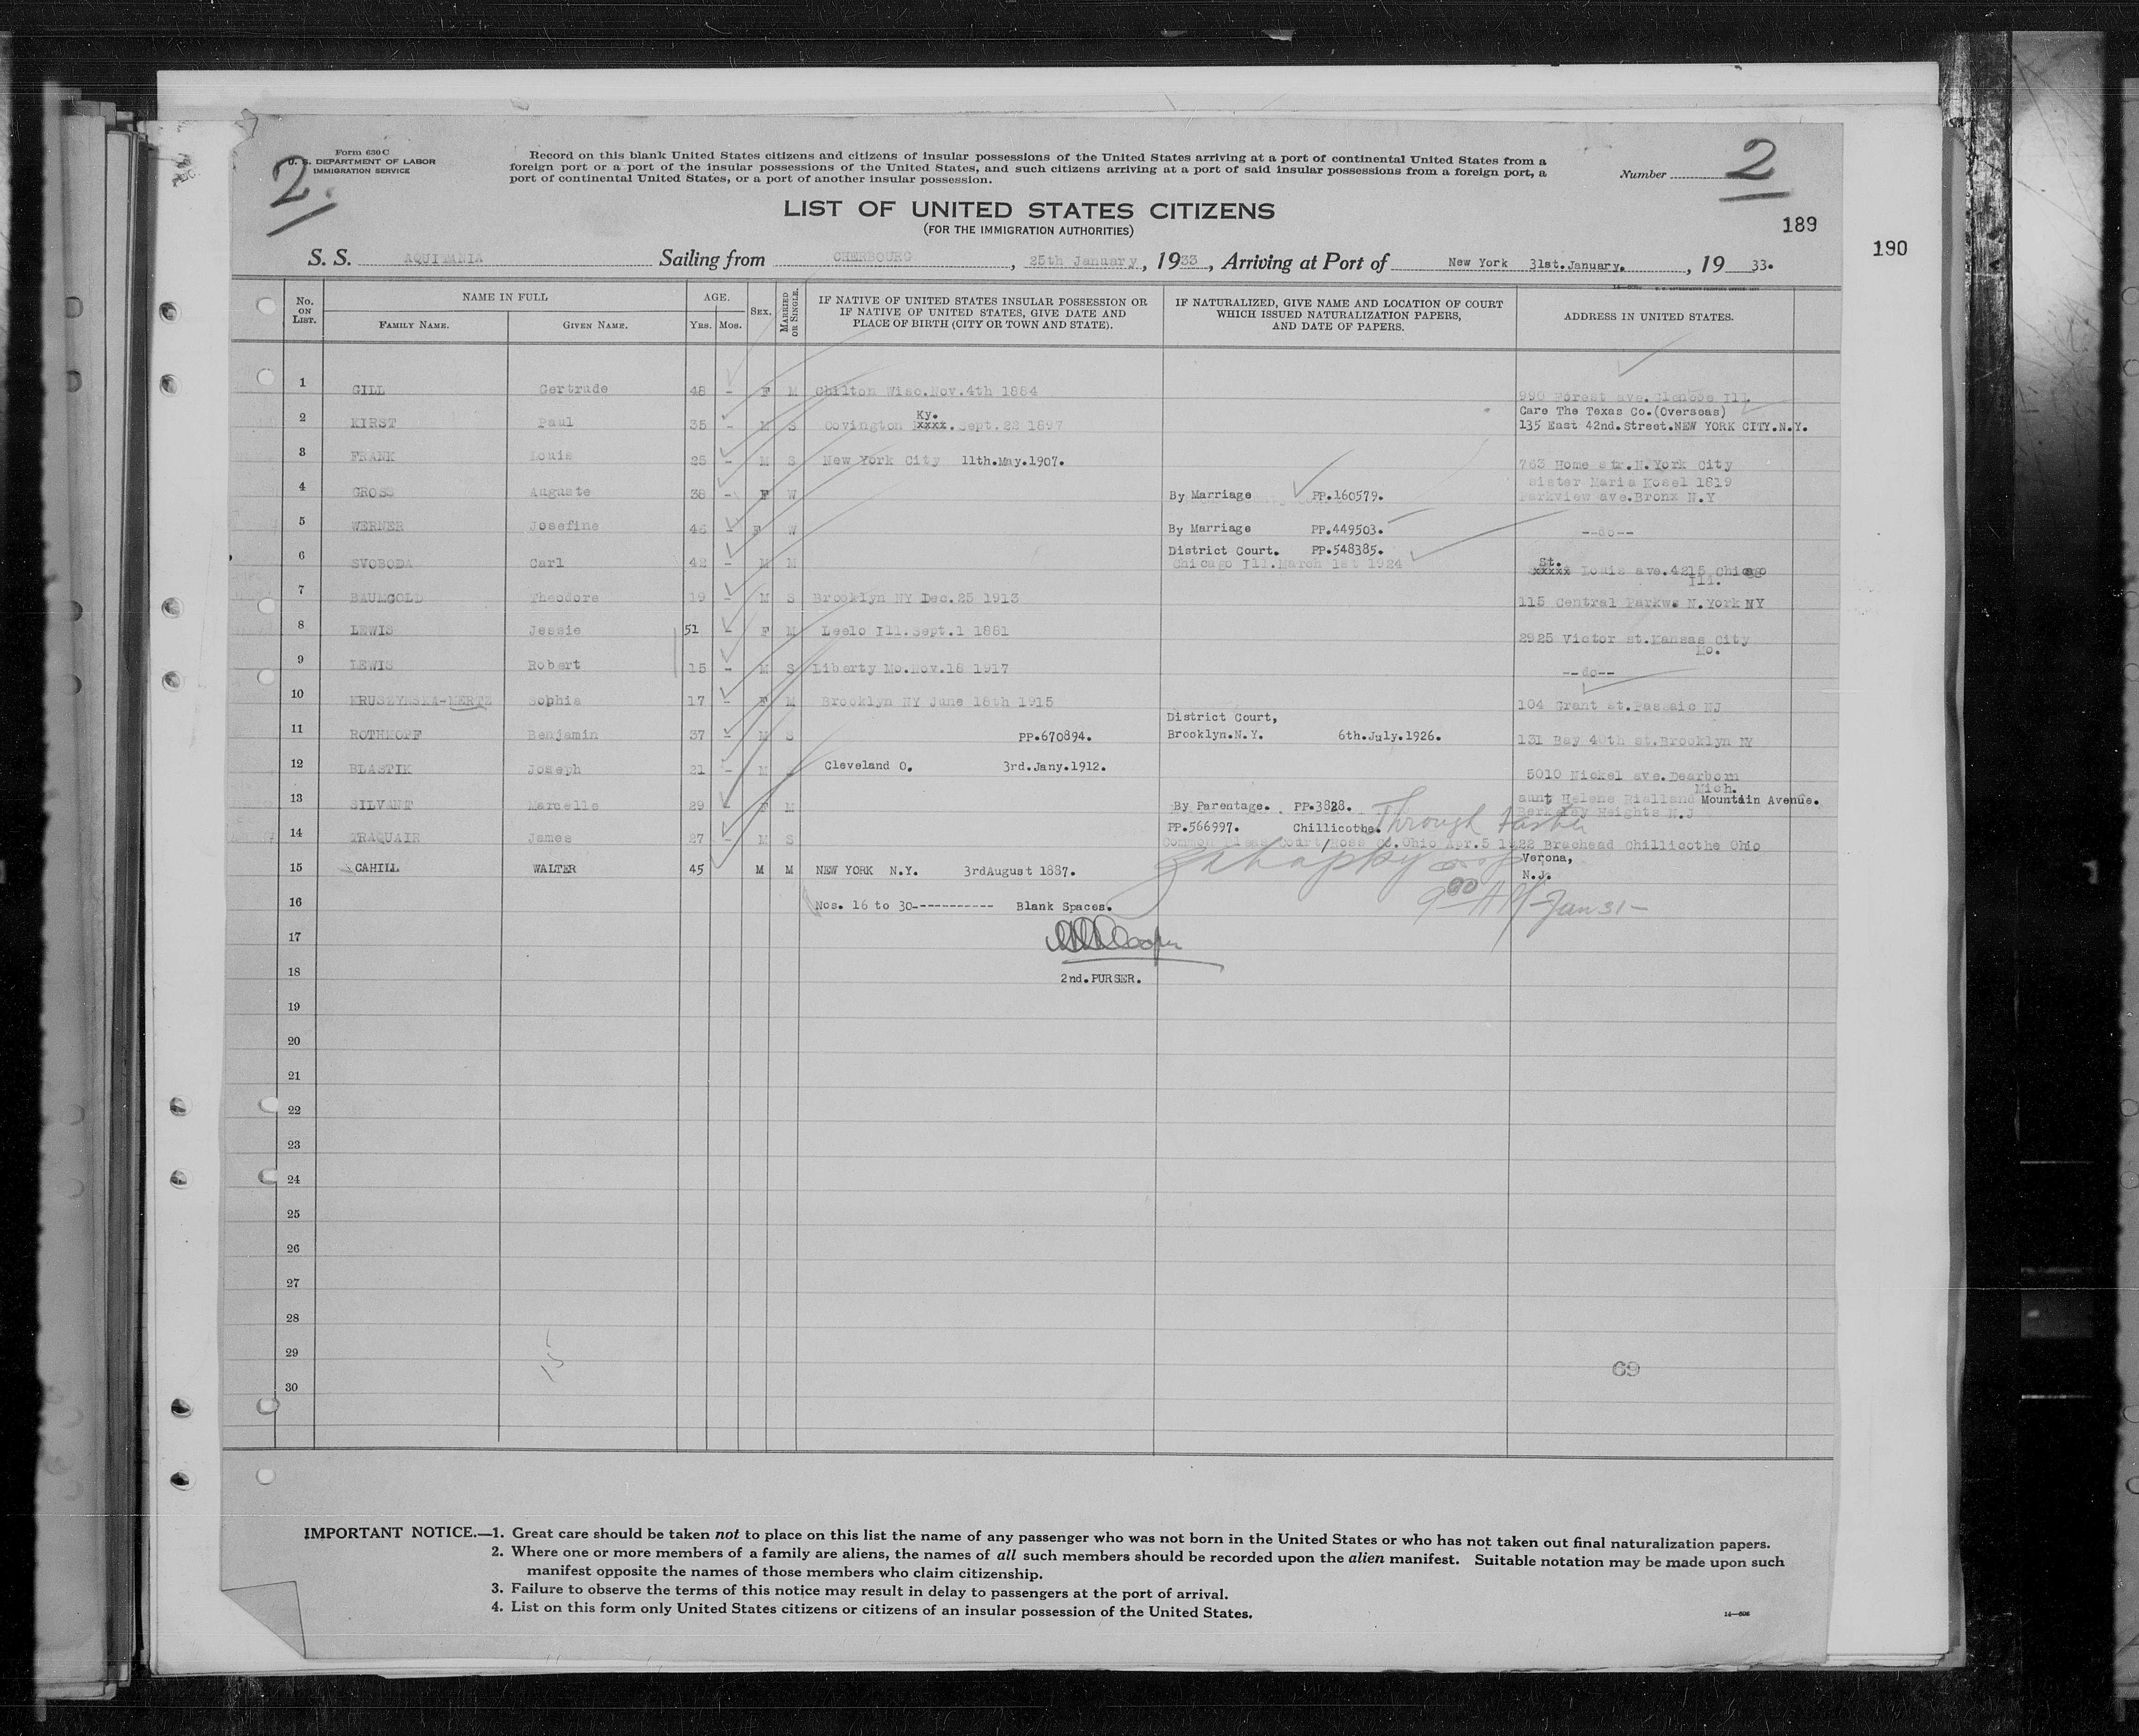 Form 630 C
U. S. DEPARTMENT OF LABOR
IMMIGRATION SERVICE
2.
Record on this blank United States citizens and citizens of insular possessions of the United States arriving at a port of continental United States from a
foreign port or a port of the insular possessions of the United States, and such citizens arriving at a port of said insular possessions from a foreign port, a
port of continental United States, or a port of another insular possession.
Number 2
LIST OF UNITED STATES CITIZENS
(FOR THE IMMIGRATION AUTHORITIES)
189
190
S. S. AQUITANIA Sailing from CHERBOURG, 25th January, 1933, Arriving at Port of New York 31st.January., 19 33.
No. ON LIST. NAME IN FULL AGE. SEX. MARRIED OR SINGLE. IF NATIVE OF UNITED STATES INSULAR POSSESSION OR IF NATIVE OF UNITED STATES, GIVE DATE AND PLACE OF BIRTH (CITY OR TOWN AND STATE). IF NATURALIZED, GIVE NAME AND LOCATION OF COURT WHICH ISSUED NATURALIZATION PAPERS, AND DATE OF PAPERS. ADDRESS IN UNITED STATES.
FAMILY NAME. GIVEN NAME. YRS. MOS.
1 GILL Gertrude 48 - F M Chilton Wisc.Nov.4th 1884 990 Forest ave.Glencoe Ill.
Ky. Care The Texas Co.(Overseas)
2 KIRST Paul 35 - M S Covington xxxx.Sept.22 1897 135 East 42nd.Street.NEW YORK CITY.N.Y.
3 FRANK Louis 25 - M S New York City 11th.May.1907. 763 Home str.N.York City
sister Maria Kosel 1819
4 GROSS Auguste 38 - F W By Marriage PP.160579. Parkview ave.Bronx N.Y
5 WERNER Josefine 46 - F W By Marriage PP.449503. --do--
District Court. PP.548385.
6 SVOBODA Carl 42 - M M Chicago Ill.March 1st 1924 St. xxxxx Louis ave.4215 Chicago
Ill.
7 BAUMGOLD Theodore 19 - M S Brooklyn NY Dec.25 1913 115 Central Parkw. N.York NY
8 LEWIS Jessie 51 - F M Leelo Ill.Sept.1 1881 2925 Victor st.Kansas City
Mo.
9 LEWIS Robert 15 - M S Liberty Mo.Nov.18 1917 --do--
10 KRUSZYNSKA-MERTZ Sophia 17 - F M Brooklyn NY June 18th 1915 104 Grant st.Passaic NJ
District Court,
11 ROTHKOFF Benjamin 37 - M S PP.670894. Brooklyn.N.Y. 6th.July.1926. 131 Bay 40th st.Brooklyn NY
12 BLASTIK Joseph 21 - M Cleveland O. 3rd.Jany.1912. 5010 Nickel ave.Dearborn
Mich.
13 SILVANT Marcelle 29 - F M By Parentage. PP.3828. aunt Helene Rielland Mountain Avenue.
Berkeley Heights N.J
PP.566997. Chillicothe. Through
14 TRAQUAIR James 27 - M S Common Pleas Court/Ross Co.Ohio Apr.5 1922 Braehead Chillicothe Ohio
15 CAHILL WALTER 45 M M NEW YORK N.Y. 3rdAugust 1887. Verona,
N.J.
9 00 AM Jan 31 -
16 Nos. 16 to 30----------- Blank Spaces.
17 Cooper
18 2nd.PURSER.
19
20
21
22
23
24
25
26
27
28
29
30
15
69
IMPORTANT NOTICE.—1. Great care should be taken not to place on this list the name of any passenger who was not born in the United States or who has not taken out final naturalization papers.
2. Where one or more members of a family are aliens, the names of all such members should be recorded upon the alien manifest. Suitable notation may be made upon such
manifest opposite the names of those members who claim citizenship.
3. Failure to observe the terms of this notice may result in delay to passengers at the port of arrival.
4. List on this form only United States citizens or citizens of an insular possession of the United States.
14—606